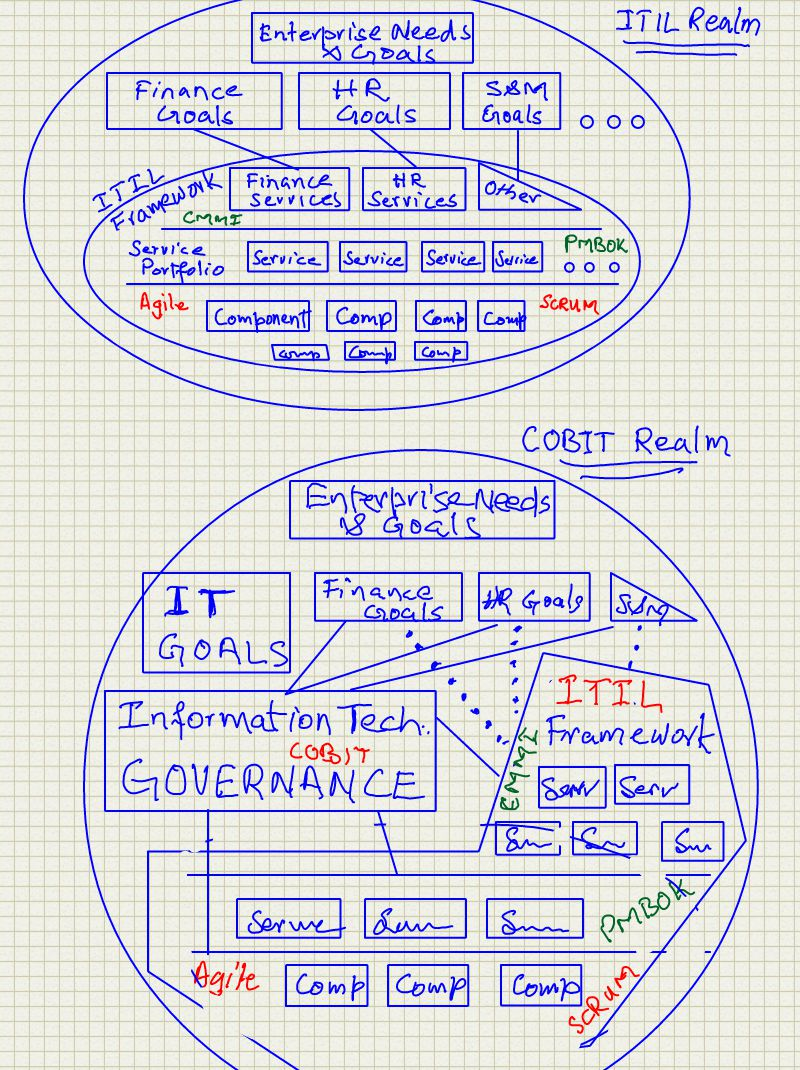 ITIL Realm
Enterprise Needs
& Goals
Finance
Goals
HR
Goals
S&M
Goals
ITIL
Framework
Finance
Services
HR
Services
Other
CMMI
Service
Portfolio
Service
Service
Service
Service
PMBOK
Agile
Component
Comp
Comp
Comp
SCRUM
Comp
Comp
Comp
COBIT Realm
Enterprise Needs
& Goals
IT
GOALS
Finance
Goals
HR Goals
S&M
Information Tech.
COBIT
GOVERNANCE
ITIL
Framework
Serv
Serv
PMBOK
Agile
Comp
Comp
Comp
SCRUM